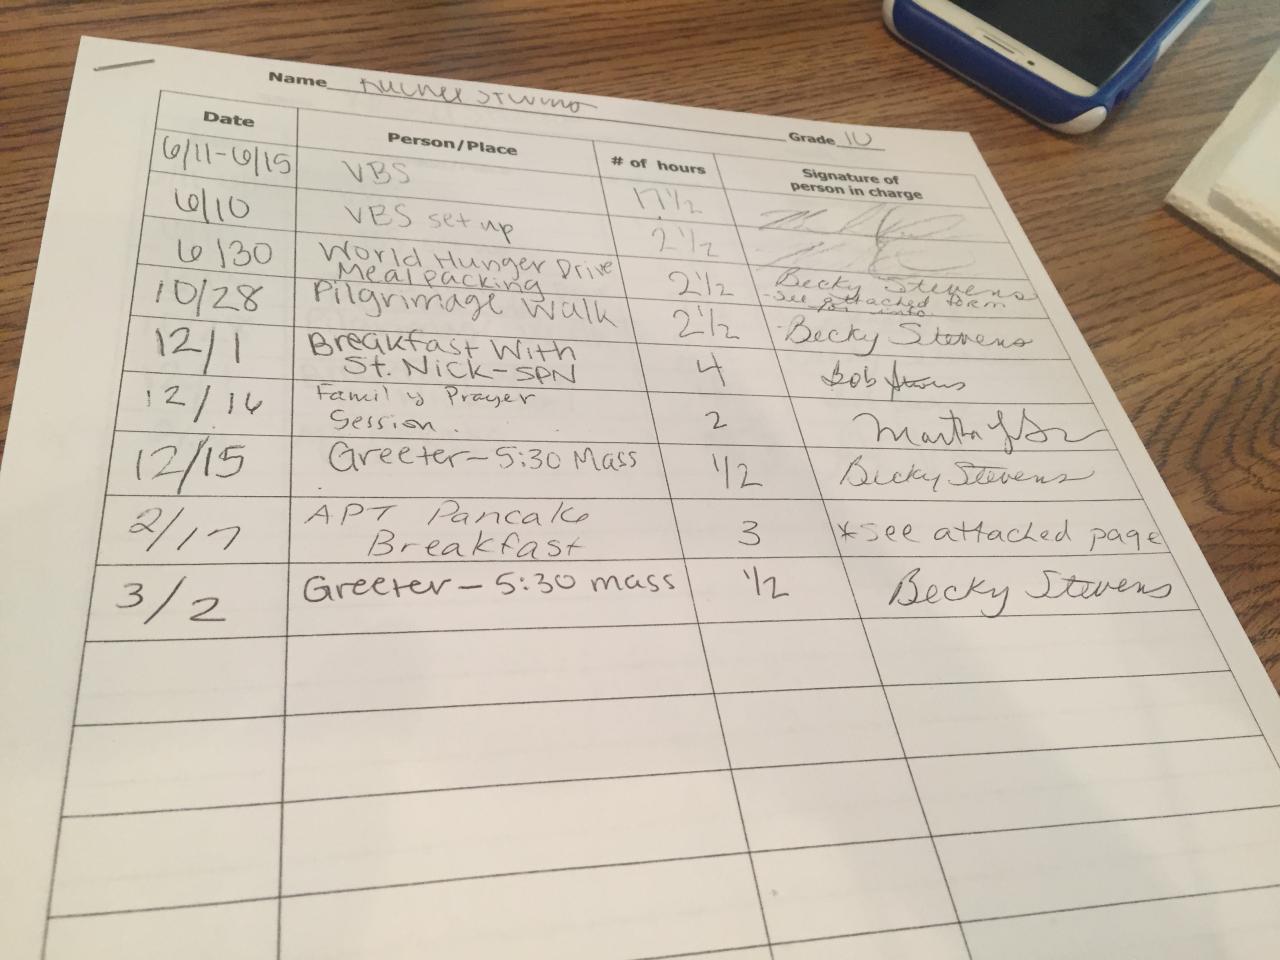 Name
Grade 10
Date Person/Place # of hours Signature of person in charge
6/11-6/15 VBS 17 1/2
6/10 VBS set up 2 1/2
6/30 World Hunger Drive 2 1/2 Becky Stevens
Mealpacking -see attached form for info
10/28 Pilgrimage Walk 2 1/2 Becky Stevens
12/1 Breakfast With 4 Bob
St. Nick-SPN
12/16 Family Prayer 2 Martha
Session.
12/15 Greeter-5:30 Mass 1/2 Becky Stevens
2/17 APT Pancake 3 *see attached page
Breakfast
3/2 Greeter-5:30 mass 1/2 Becky Stevens